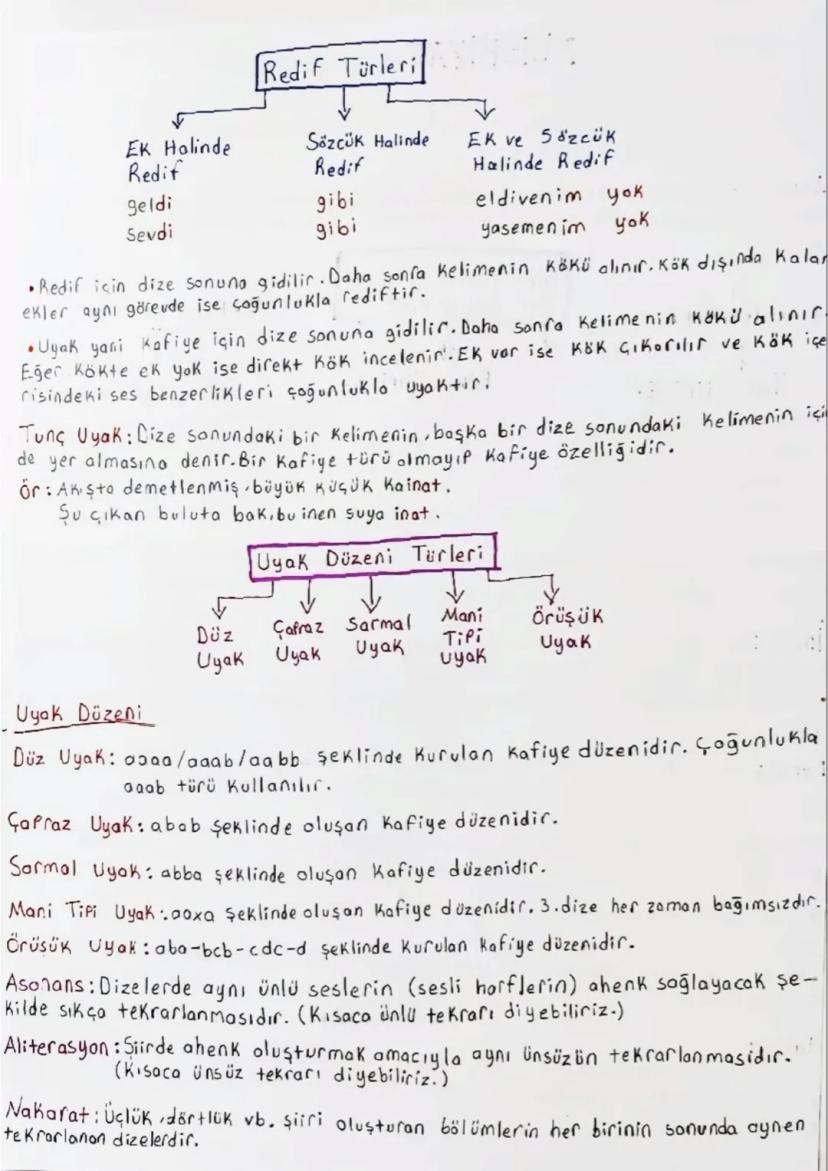 Redif Türleri
Ek Halinde Redif
geldi
sevdi
Sözcük Halinde Redif
gibi
gibi
Ek ve Sözcük Halinde Redif
eldivenim yok
yasemenim yok
• Redif için dize sonuna gidilir. Daha sonra kelimenin kökü alınır. Kök dışında kalan
ekler aynı görevde ise çoğunlukla rediftir.
• Uyak yani kafiye için dize sonuna gidilir. Daha sonra kelimenin kökü alınır.
Eğer kökte ek yok ise direkt kök incelenir. Ek var ise kök çıkarılır ve kök içe
risindeki ses benzerlikleri çoğunlukla uyaktır.
Tunç Uyak: Dize sonundaki bir kelimenin, başka bir dize sonundaki kelimenin için
de yer almasına denir. Bir kafiye türü olmayıp kafiye özelliğidir.
Ör: Akışta demetlenmiş, büyük küçük kainat.
Şu çıkan buluta bak, bu inen suya inat.
Uyak Düzeni Türleri
Düz Uyak
Çapraz Uyak
Sarmal Uyak
Mani Tipi Uyak
Örüşük Uyak
Uyak Düzeni
Düz Uyak: aaaa/aaab/aabb şeklinde kurulan kafiye düzenidir. Çoğunlukla
aaab türü kullanılır.
Çapraz Uyak: abab şeklinde oluşan kafiye düzenidir.
Sarmal Uyak: abba şeklinde oluşan kafiye düzenidir.
Mani Tipi Uyak: aaxa şeklinde oluşan kafiye düzenidir. 3. dize her zaman bağımsızdır.
Örüşük Uyak: aba-bcb-cdc-d şeklinde kurulan kafiye düzenidir.
Asonans: Dizelerde aynı ünlü seslerin (sesli harflerin) ahenk sağlayacak şe-
kilde sıkça tekrarlanmasıdır. (Kısaca ünlü tekrarı diyebiliriz.)
Aliterasyon: Şiirde ahenk oluşturmak amacıyla aynı ünsüzün tekrarlanmasıdır.
(Kısaca ünsüz tekrarı diyebiliriz.)
Nakarat: Üçlük, dörtlük vb. şiiri oluşturan bölümlerin her birinin sonunda aynen
tekrarlanan dizelerdir.